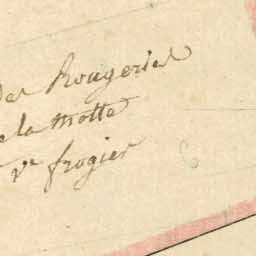 des Rougeries
de la motte
Vᵉ frogier